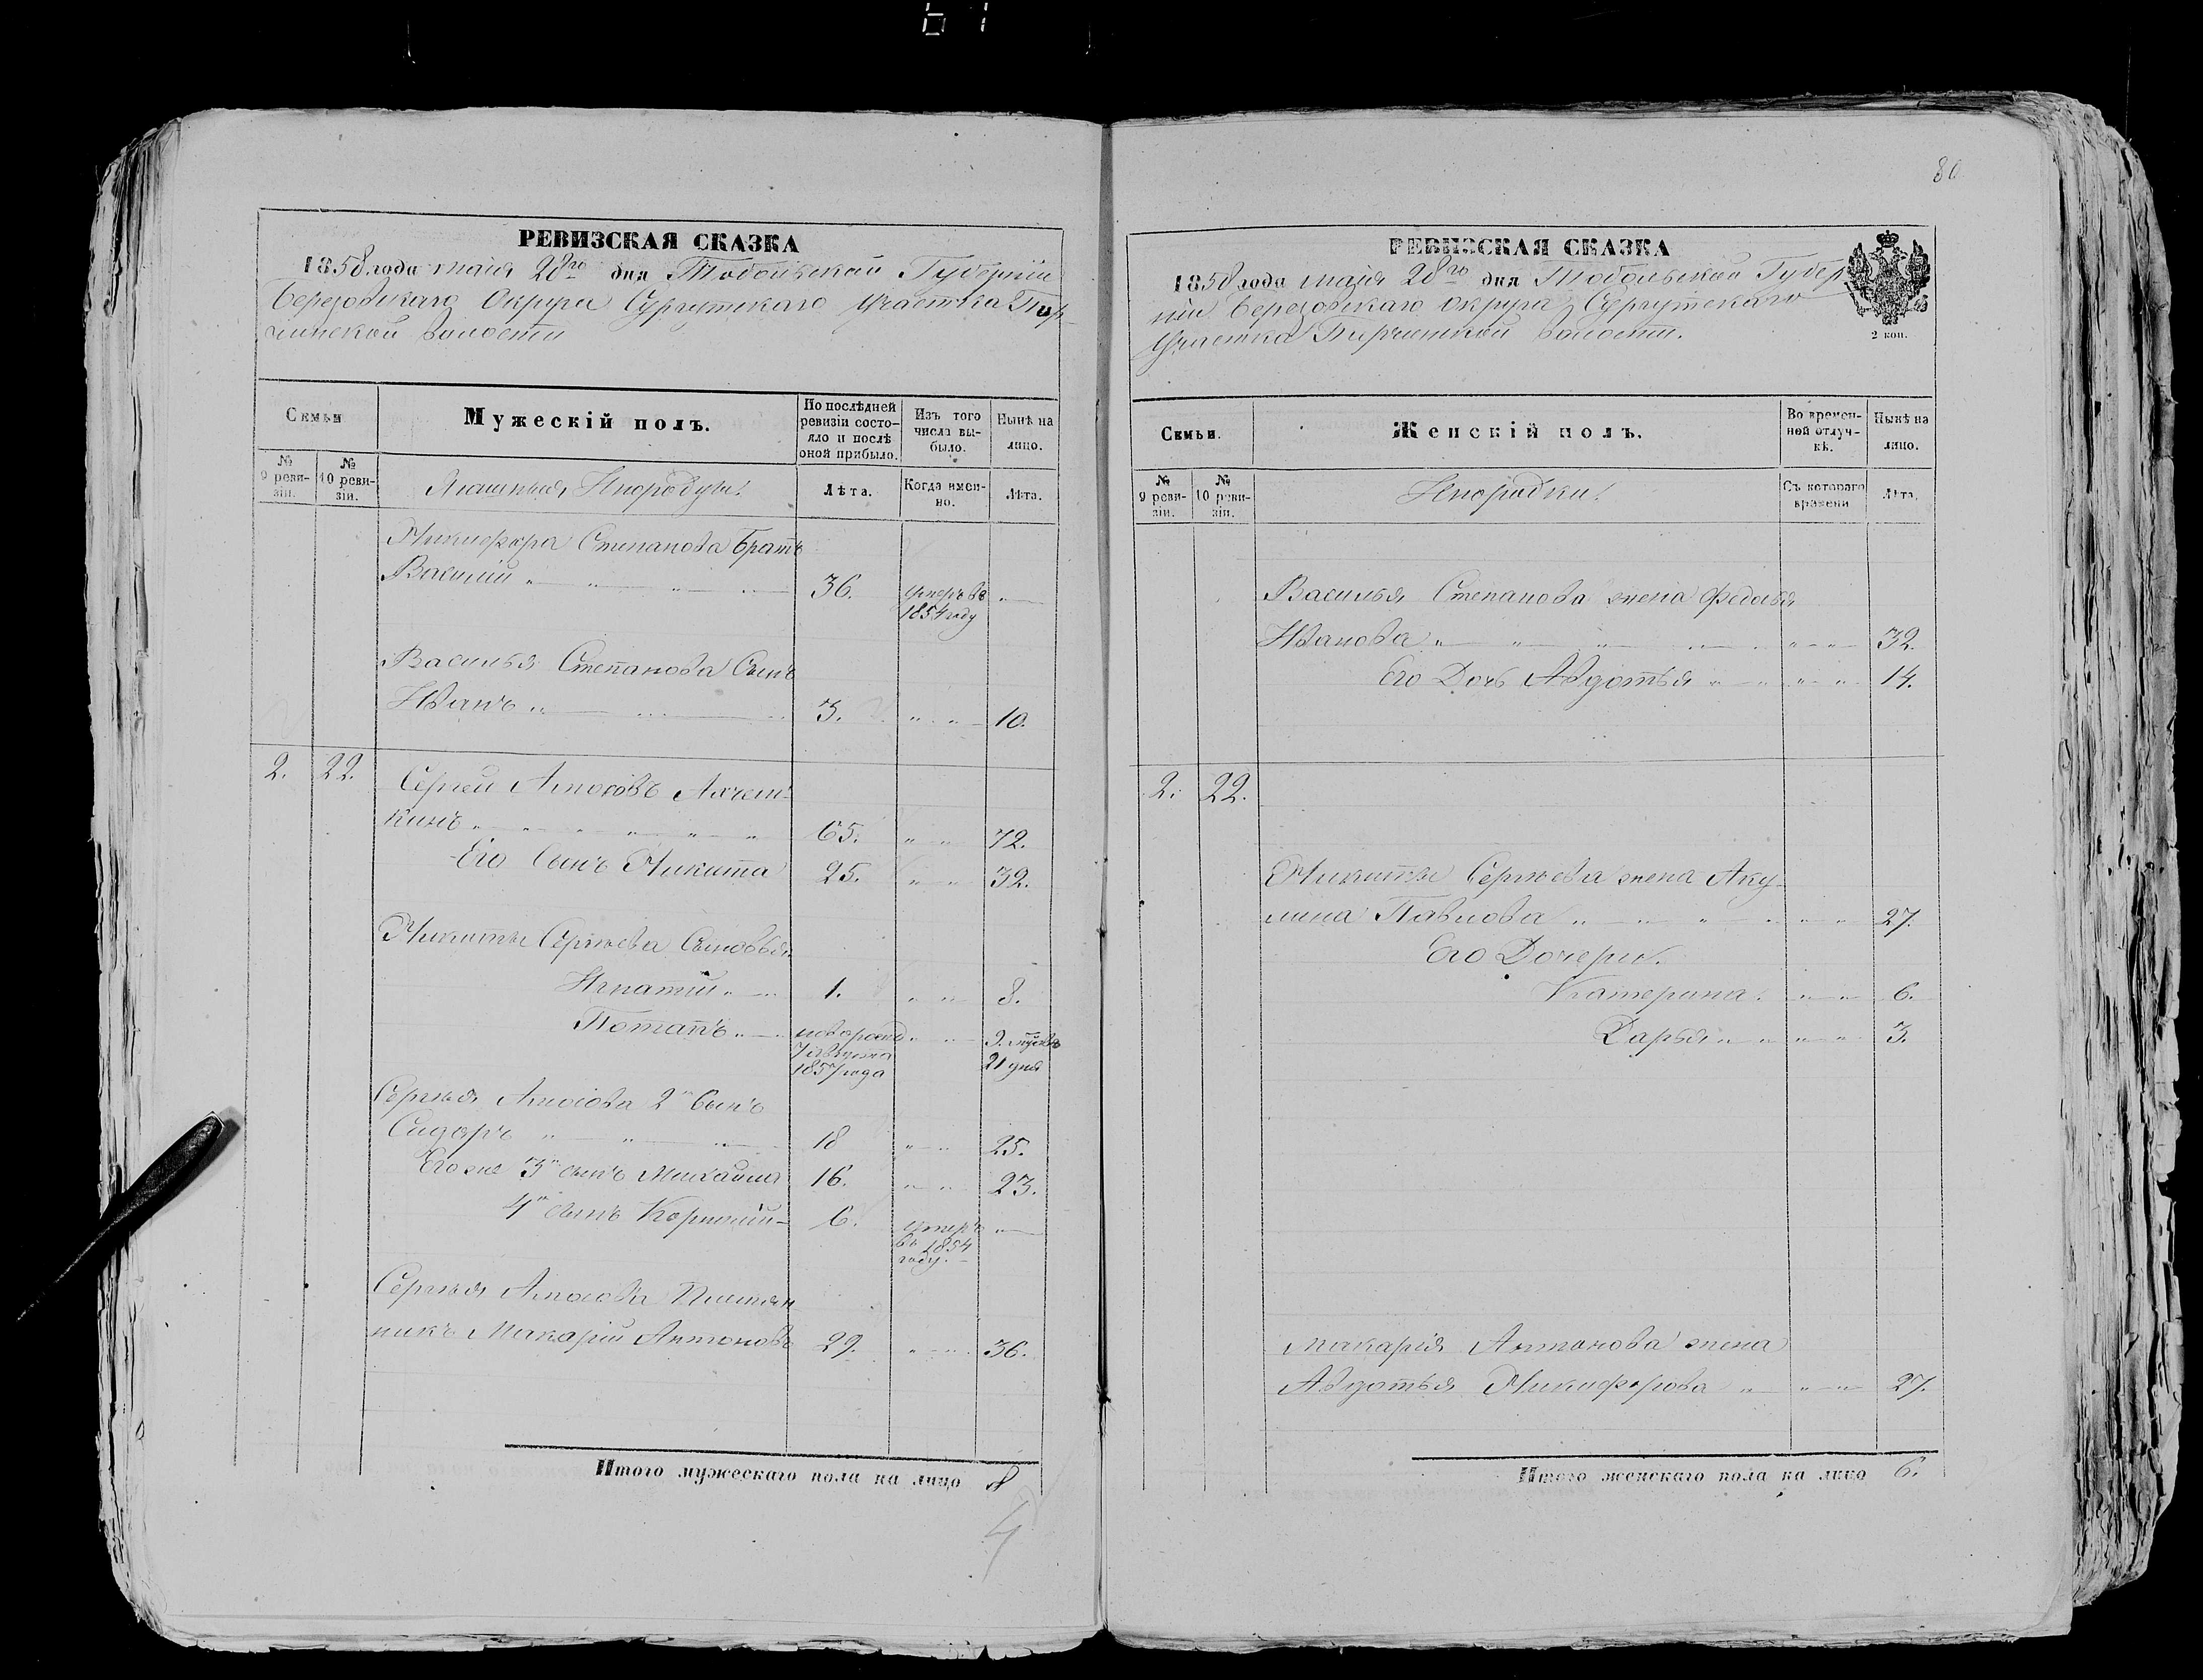 61
РЕВИЗСКАЯ СКАЗКА
1858 года маія 28го дня Тобольской Губерніи
Березовскаго Округа Сургутскаго Участка Пир-
чинской Волости
Семьи
Мужескій полъ.
По послѣдней ревизіи состо-яло и послѣ оной прибыло.
Изъ того числа вы-было.
Нынѣ на лицо.
№ 9 реви-зіи.
№ 10 реви-зіи.
Ясашныя Инородцы.
Лѣта.
Когда имен-но.
Лѣта.
Никифора Степанова братъ
Василій 36. умеръ въ
1854 году
Василья Степанова Сынъ
Иванъ 3. 10.
2. 22. Сергей Амосовъ
кинъ 65. 72.
Его Сынъ Никита 25. 32.
Никиты Сергѣева Сыновья
Игнатій 1. 8.
Потапъ новорожд 9. мѣсяц
7 августа 21 дня
1857 года
Сергѣя Амосова 2й Сынъ
Сидоръ 18 25.
Его же 3й сынъ Михайла 16. 23.
4й сынъ Корнилій 6. умеръ
въ 1854
году.
Сергѣя Амосова Племян
никъ Макарій Антоновъ 29. 36.
Итого мужескаго пола на лицо 8
80
РЕВИЗСКАЯ СКАЗКА
1858 года маія 28го дня Тобольской Губер
ніи Березовскаго округа Сургутскаго
Участка Пирчинской волости.
2 коп.
Семьи.
Женскій полъ.
Во времен-ной отлуч-кѣ.
Нынѣ на лицо.
№ 9 реви-зіи.
№ 10 реви-зіи.
Инородки.
Съ котораго времени
Лѣта.
Василья Степанова жена Федосья
Иванова 32.
Его Дочь Авдотья 14.
2. 22.
Никиты Сергѣева жена Аку-
лина Павлова 27.
Его Дочери.
Катерина. 6.
Дарья 3.
Макарія Антонова жена
Авдотья Никифорова 27.
Итого женскаго пола на лицо 6.